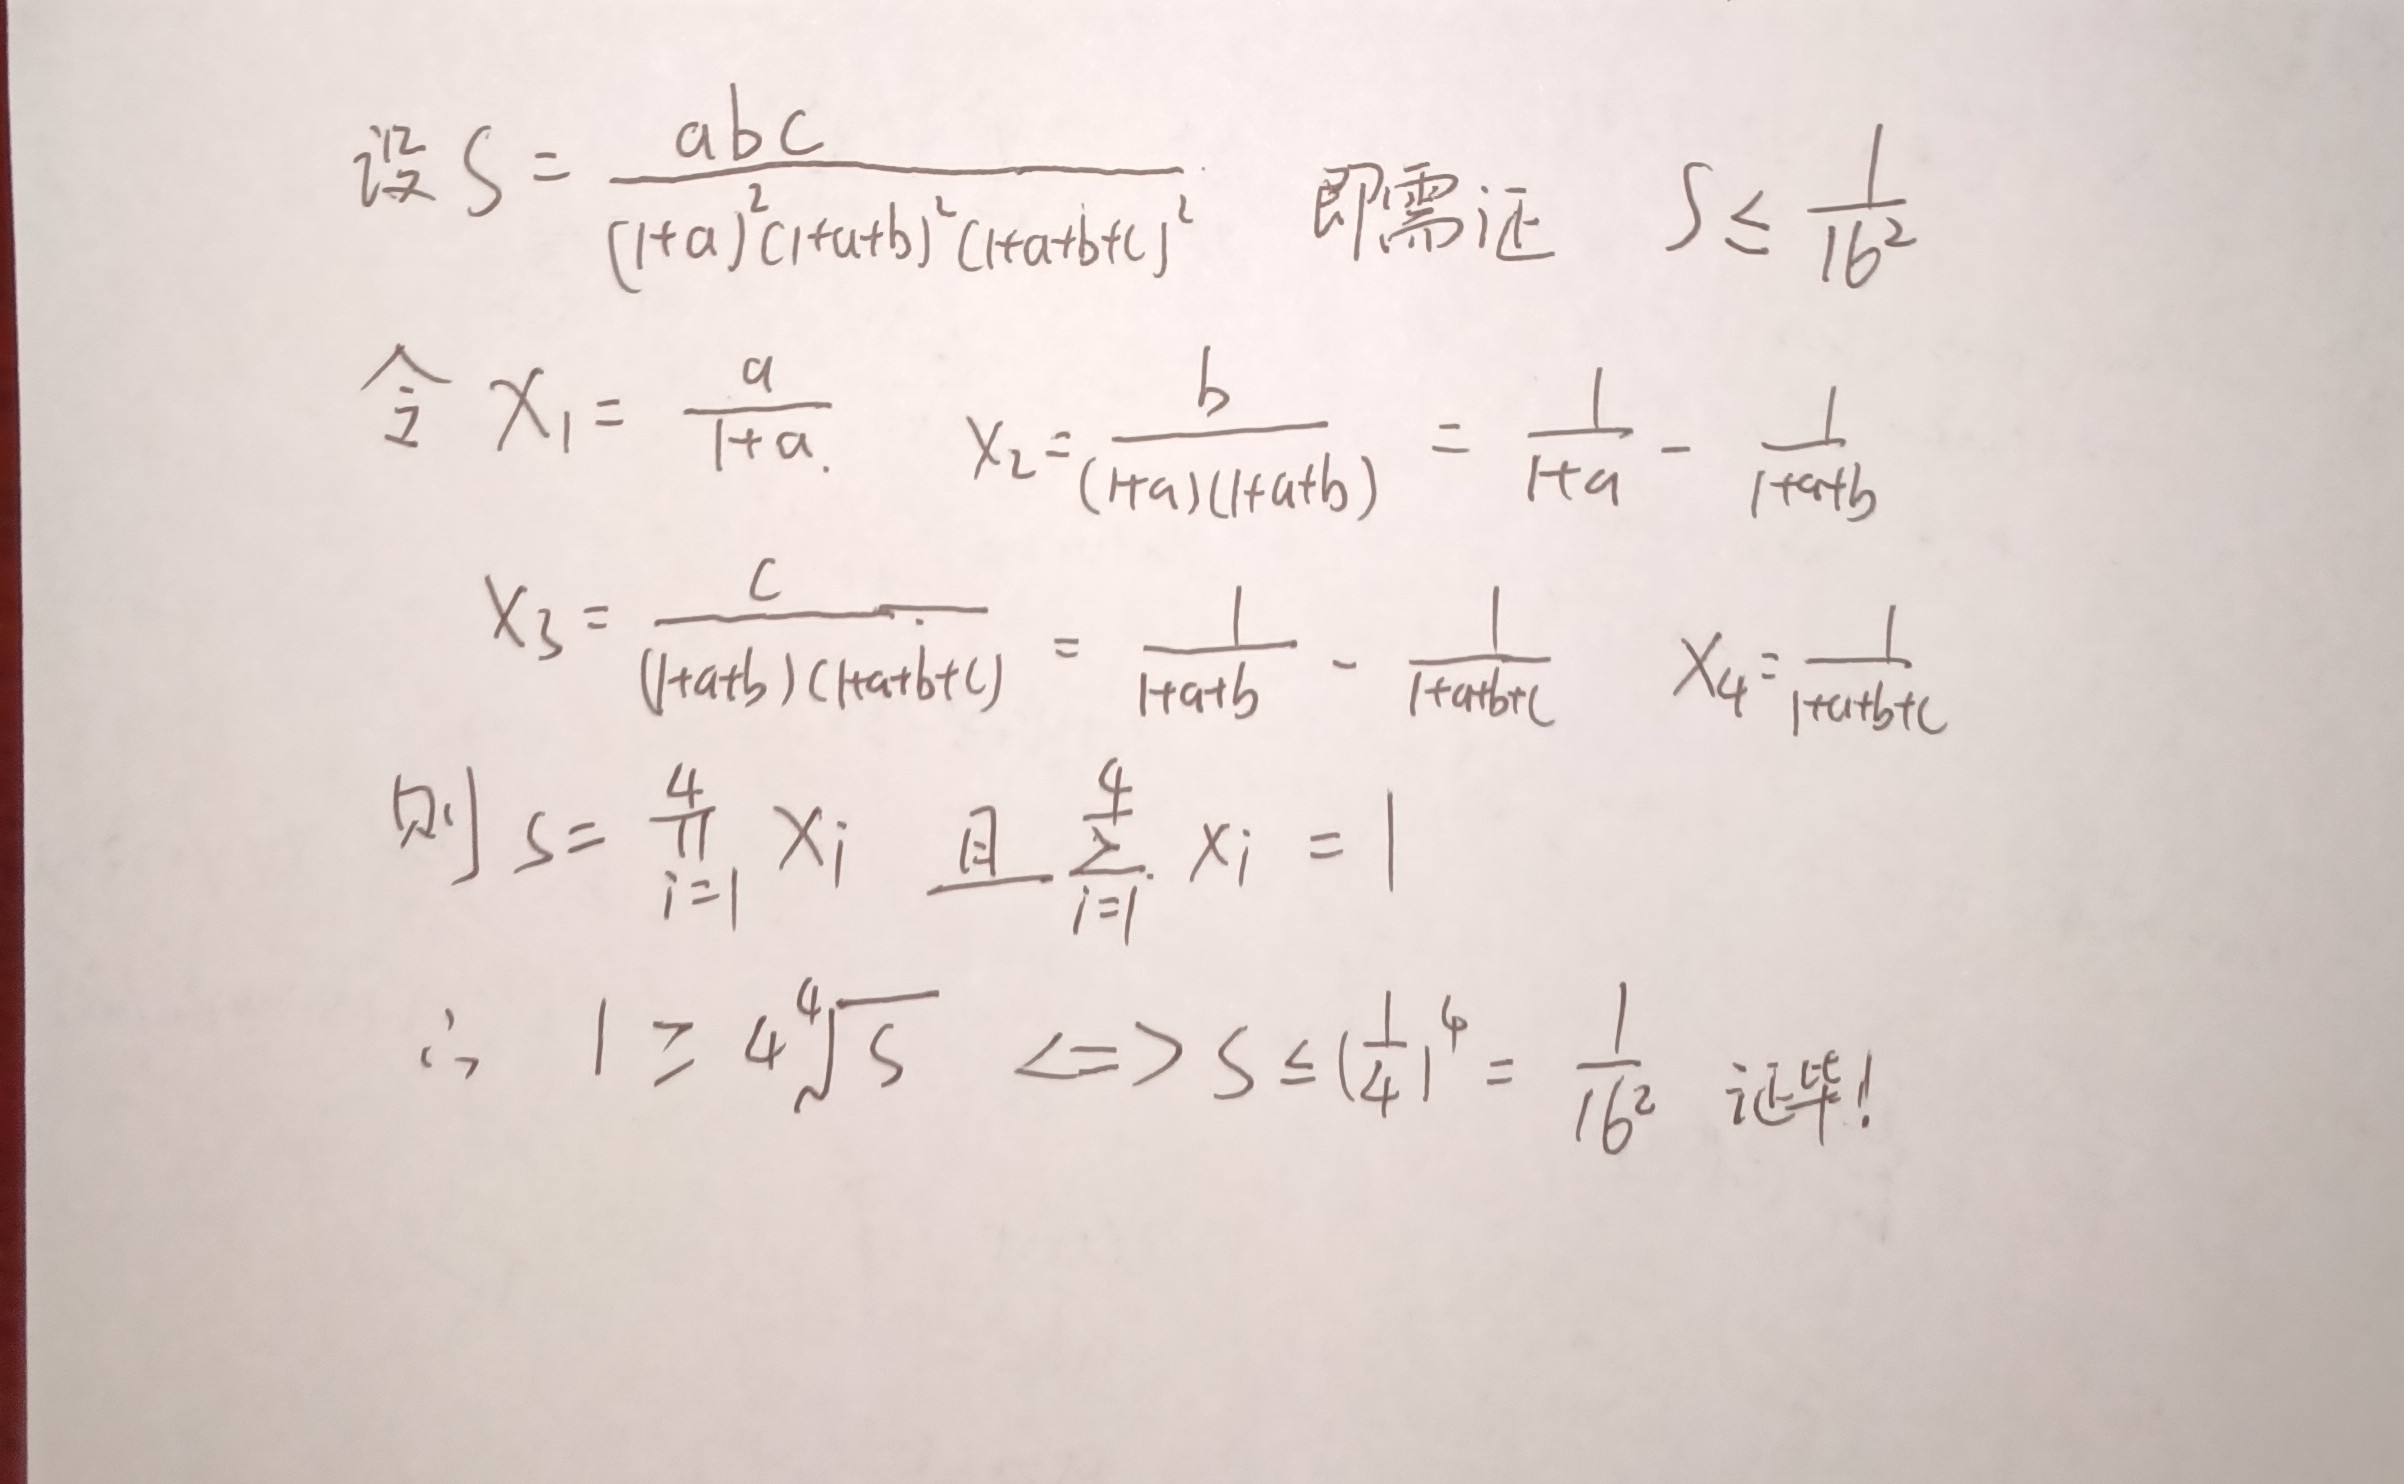 设 S = \frac{abc}{(1+a)^2(1+a+b)^2(1+a+b+c)^2} 即需证 S ≤ \frac{1}{16^2}
令 x_1 = \frac{a}{1+a.} x_2 = \frac{b}{(1+a)(1+a+b)} = \frac{1}{1+a} - \frac{1}{1+a+b}
x_3 = \frac{c}{(1+a+b)(1+a+b+c)} = \frac{1}{1+a+b} - \frac{1}{1+a+b+c} x_4 = \frac{1}{1+a+b+c}
则 S = \prod_{i=1}^{4} x_i 且 \sum_{i=1}^{4} x_i = 1
∴ 1 ≥ 4\sqrt[4]{S} <=> S ≤ (\frac{1}{4})^4 = \frac{1}{16^2} 证毕!